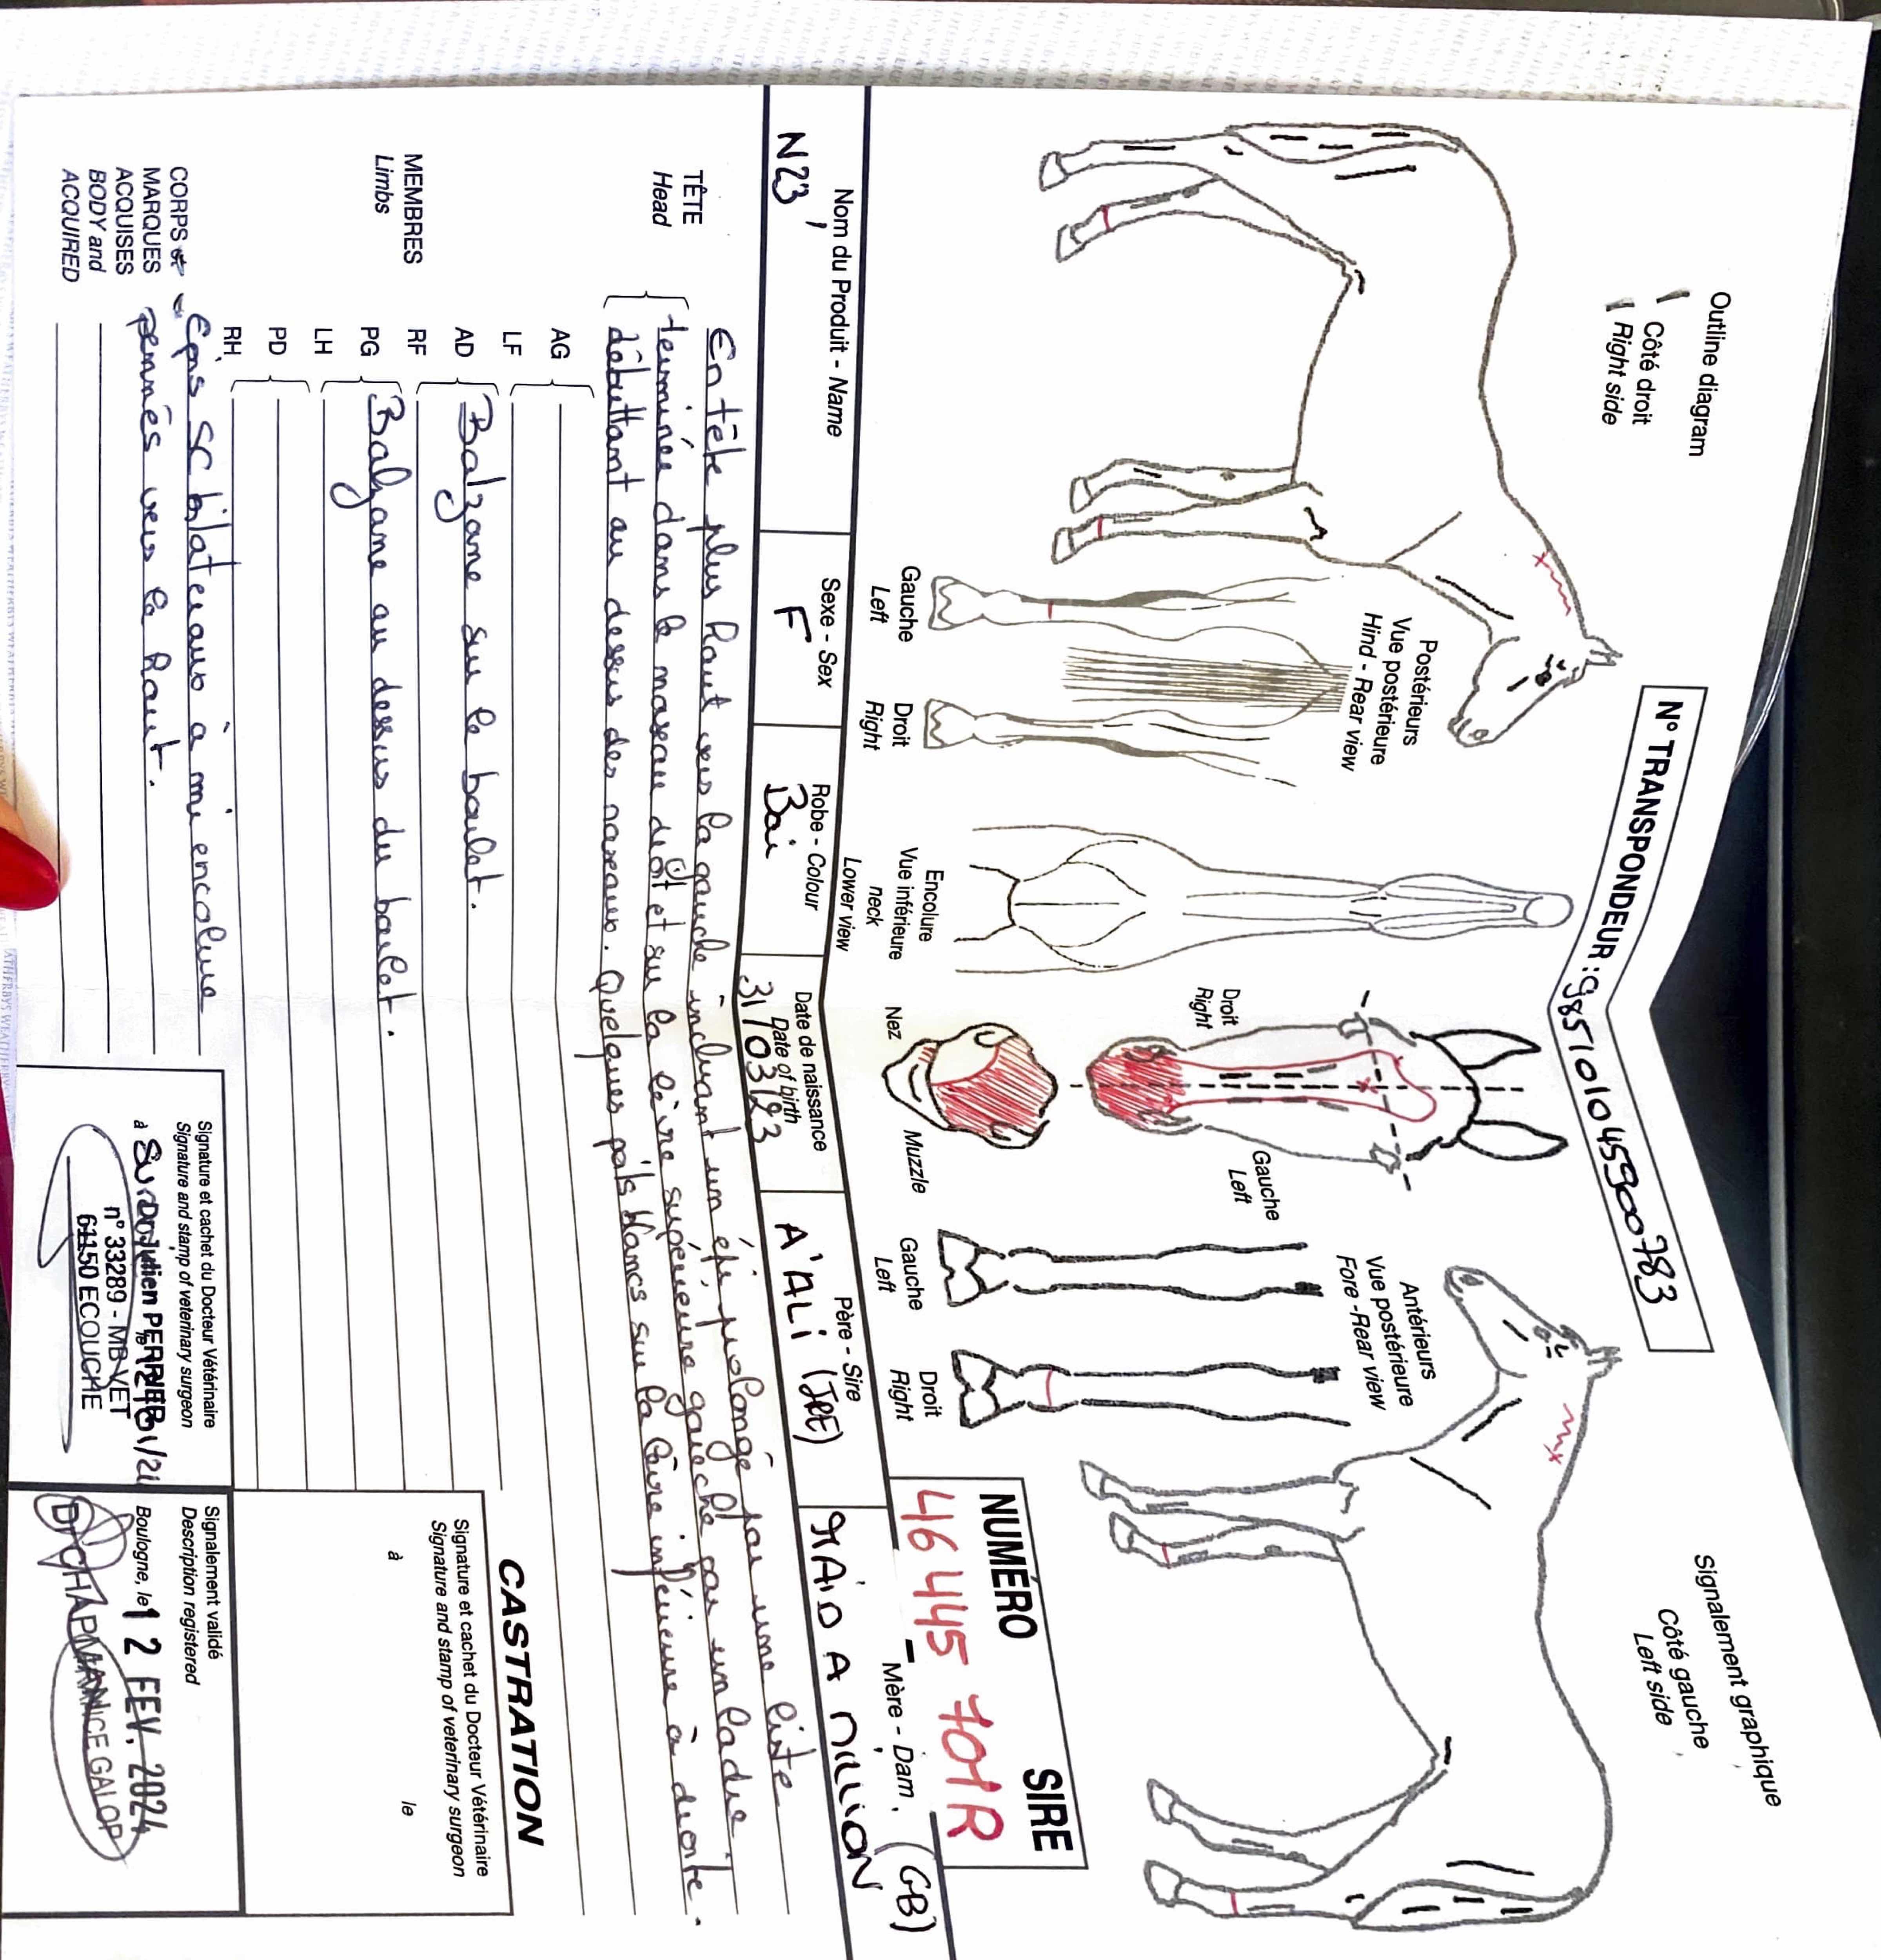 Outline diagram
Côté droit
Right side
N° TRANSPONDEUR : 985101045900783
Signalement graphique
Côté gauche
Left side
Postérieurs
Vue postérieure
Hind - Rear view
Gauche
Left
Droit
Right
Encolure
Vue inférieure
neck
Lower view
Droit
Right
Gauche
Left
Nez
Muzzle
Antérieurs
Vue postérieure
Fore -Rear view
Gauche
Left
Droit
Right
NUMÉRO SIRE
Nom du Produit - Name
N23
Sexe - Sex
F
Robe - Colour
Bai
Date de naissance
Date of birth
31/03/23
Père - Sire
A'ALI (IRE)
Mère - Dam
MAID A MILLION (GB)
TÊTE
Head
En tête plus haut vers la gauche incluant un épi, prolongé par une liste
terminée dans le naseau droit et sur la lèvre supérieure gauche par un ladre
débuttant au dessus des naseaux. Quelques poils blancs sur la lèvre inférieure à droite.
MEMBRES
Limbs
AG
LF
AD
RF
Balzane sur le boulet.
PG
LH
Balzane au dessus du boulet.
PD
RH
CORPS et
MARQUES
ACQUISES
BODY and
ACQUIRED
Epis sc bilateraux à mi encolure
pennés vers le haut.
CASTRATION
Signature et cachet du Docteur Vétérinaire
Signature and stamp of veterinary surgeon
à
le
Signature et cachet du Docteur Vétérinaire
Signature and stamp of veterinary surgeon
à
Julien PERRIER
n° 333289 - MB VET
61150 ECOUCHE
Signalement validé
Description registered
Boulogne, le 12 FEV. 2024